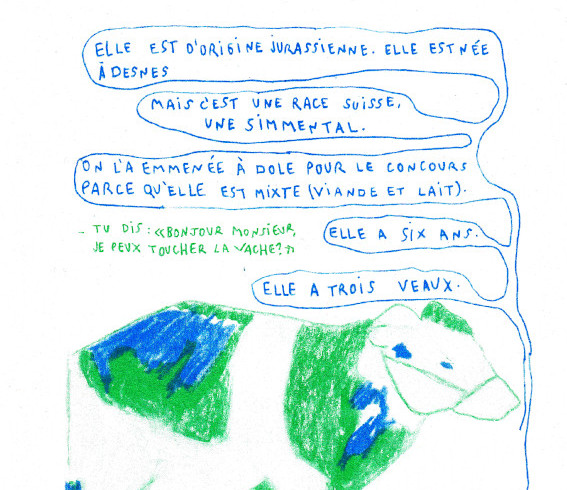 ELLE EST D'ORIGINE JURASSIENNE. ELLE EST NÉE
À DESNES
MAIS C'EST UNE RACE SUISSE,
UNE SIMMENTAL.
ON L'A EMMENÉE À DOLE POUR LE CONCOURS
PARCE QU'ELLE EST MIXTE (VIANDE ET LAIT).
– TU DIS : «BONJOUR MONSIEUR,
JE PEUX TOUCHER LA VACHE?»
ELLE A SIX ANS.
ELLE A TROIS VEAUX.